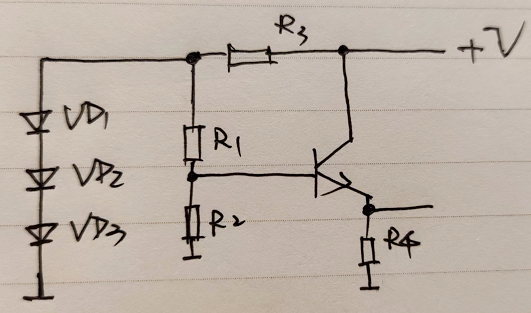 R3
+V
VD1
R1
VD2
R2
VD3
R4